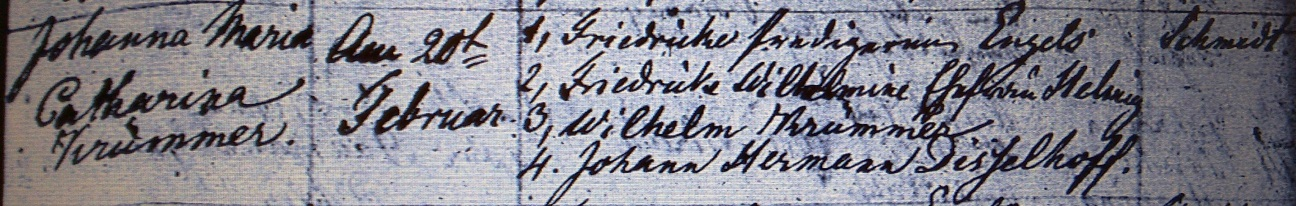 Johanna Maria
Catharina
Krümmer.
Am 20st
Februar.
1, Friedricke Predigerin Engels
2, Friedricke Wilhelmine Ehefrau Helwig
3, Wilhelm Krümmer
4. Johann Hermann Disselhoff.
Schmidt